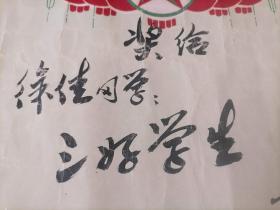 奖给
徐佳同学：
三好学生